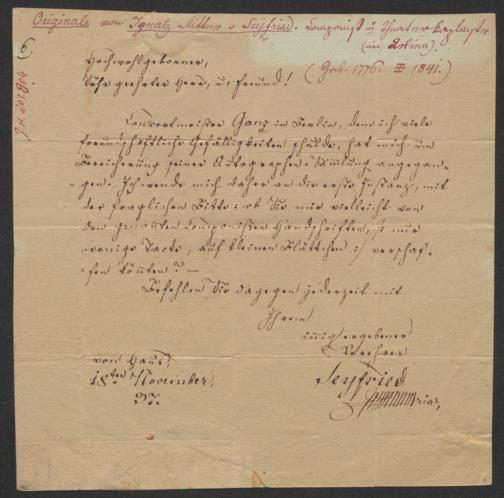 Originale von Ignatz Ritter v Seyfried. Componist u Theater Kaplmster
(in Wien)
(Geb. 1776. 1841.)
6.
J.N. 261.904
Hochwohlgeborner,
Sehr geehrter Herr, u: Freund!
Concertmeister Ganz in Berlin, dem ich viele
freundschaftliche Gefälligkeiten schulde, hat mich um
Bereicherung seiner Autographen-Sammlung angegan-
gen. Ich wende mich daher an die erste Instanz, mit
der fraglichen Bitte: ob Sie mir vielleicht von
den genannten Componisten Handschriften, /: nur
wenige Tacte, auf kleinen Blättchen :/ verschaf-
fen könnten? —
Befehlen Sie dagegen jederzeit mit
Ihrem
innig ergebenen
Verehrer
Seyfried
von Haus,
18ten November,
37.